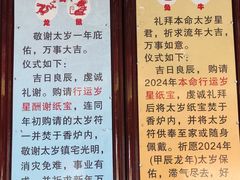 龙 鼠
敬谢太岁一年庇
佑，万事大吉。
仪式如下：
吉日良辰，虔诚
礼谢。购请行运岁
星酬谢纸宝，连同
年初购请的太岁符
一并焚于香炉内，
敬谢太岁镇宅光明，
消灾免难，事业有
牛
礼拜本命太岁星
君，祈求流年大吉，
万事如意。
仪式如下：
吉日良辰，购请
2024年本命行运岁
星纸宝，虔诚礼拜
后将太岁纸宝焚于
香炉内，并将太岁
符供奉至家或随身
佩戴。祈愿2024年
(甲辰龙年)太岁保
佑，滞气尽去，好